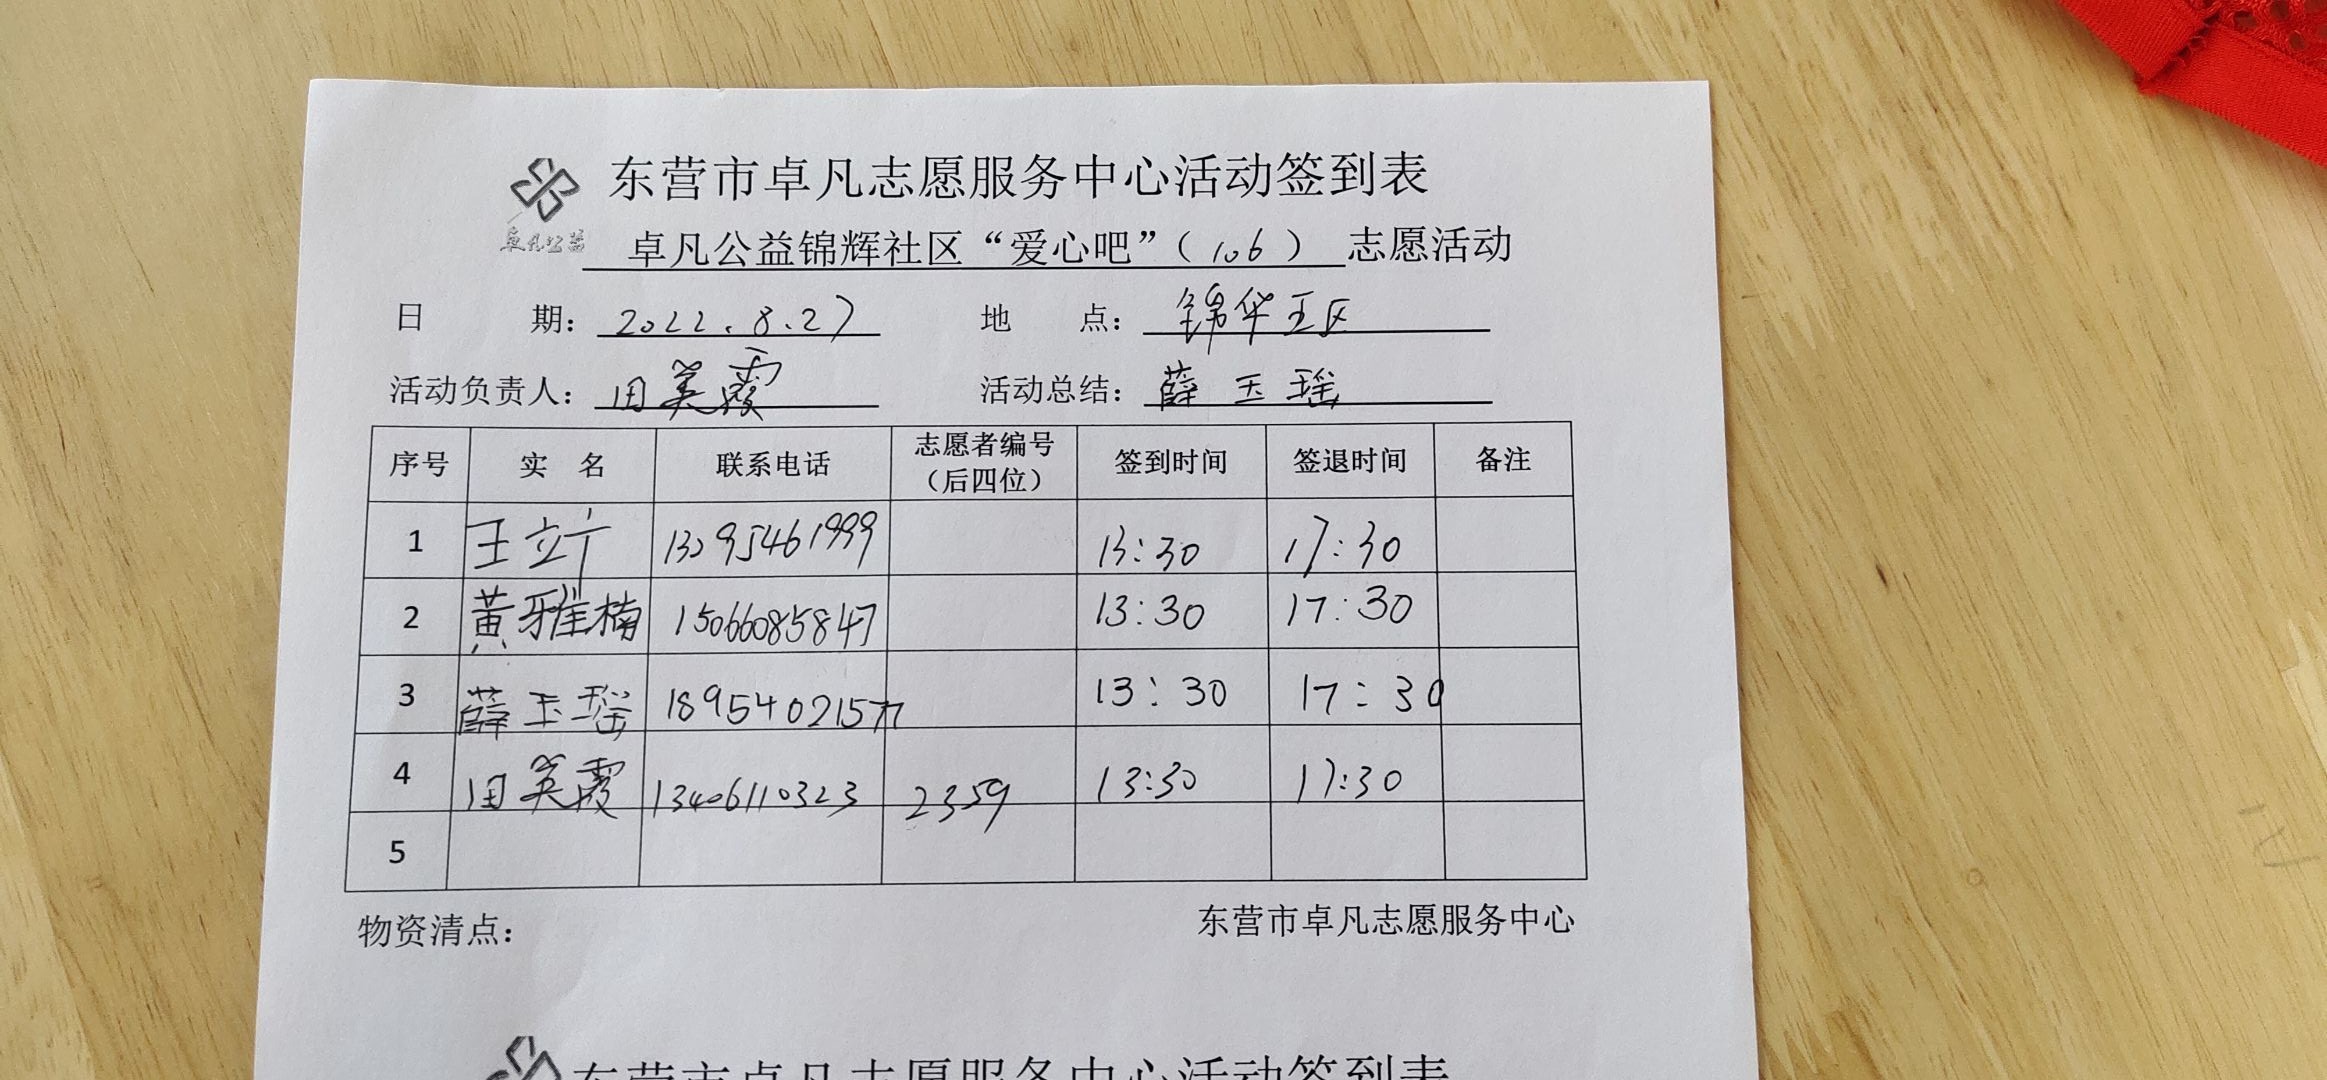 东营市卓凡志愿服务中心活动签到表
卓凡公益
卓凡公益锦辉社区“爱心吧”（106）志愿活动
日 期：2022.8.27 地 点：锦华五区
活动负责人：田英霞 活动总结：薛玉瑶
序号 实 名 联系电话 志愿者编号（后四位） 签到时间 签退时间 备注
1 王立 13:30 17:30
2 黄雅楠 15066085847 13:30 17:30
3 薛玉瑶 18954021577 13:30 17:30
4 田英霞 13406110323 2359 13:30 17:30
5
物资清点： 东营市卓凡志愿服务中心
东营市卓凡志愿服务中心活动签到表